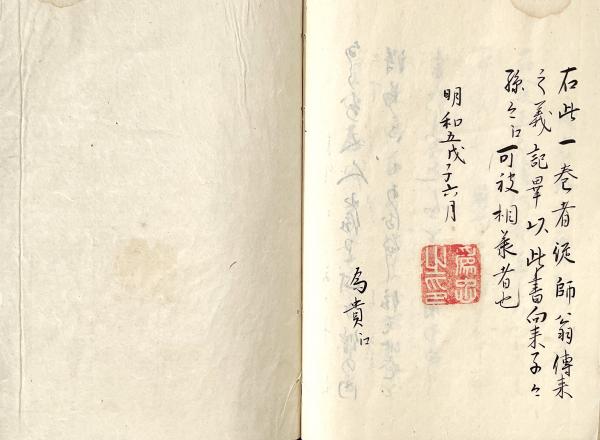 右此一巻者従師翁傳来
之義記畢以此書向来子々
孫々江可被相兼者也
明和五戊子六月
為貴江